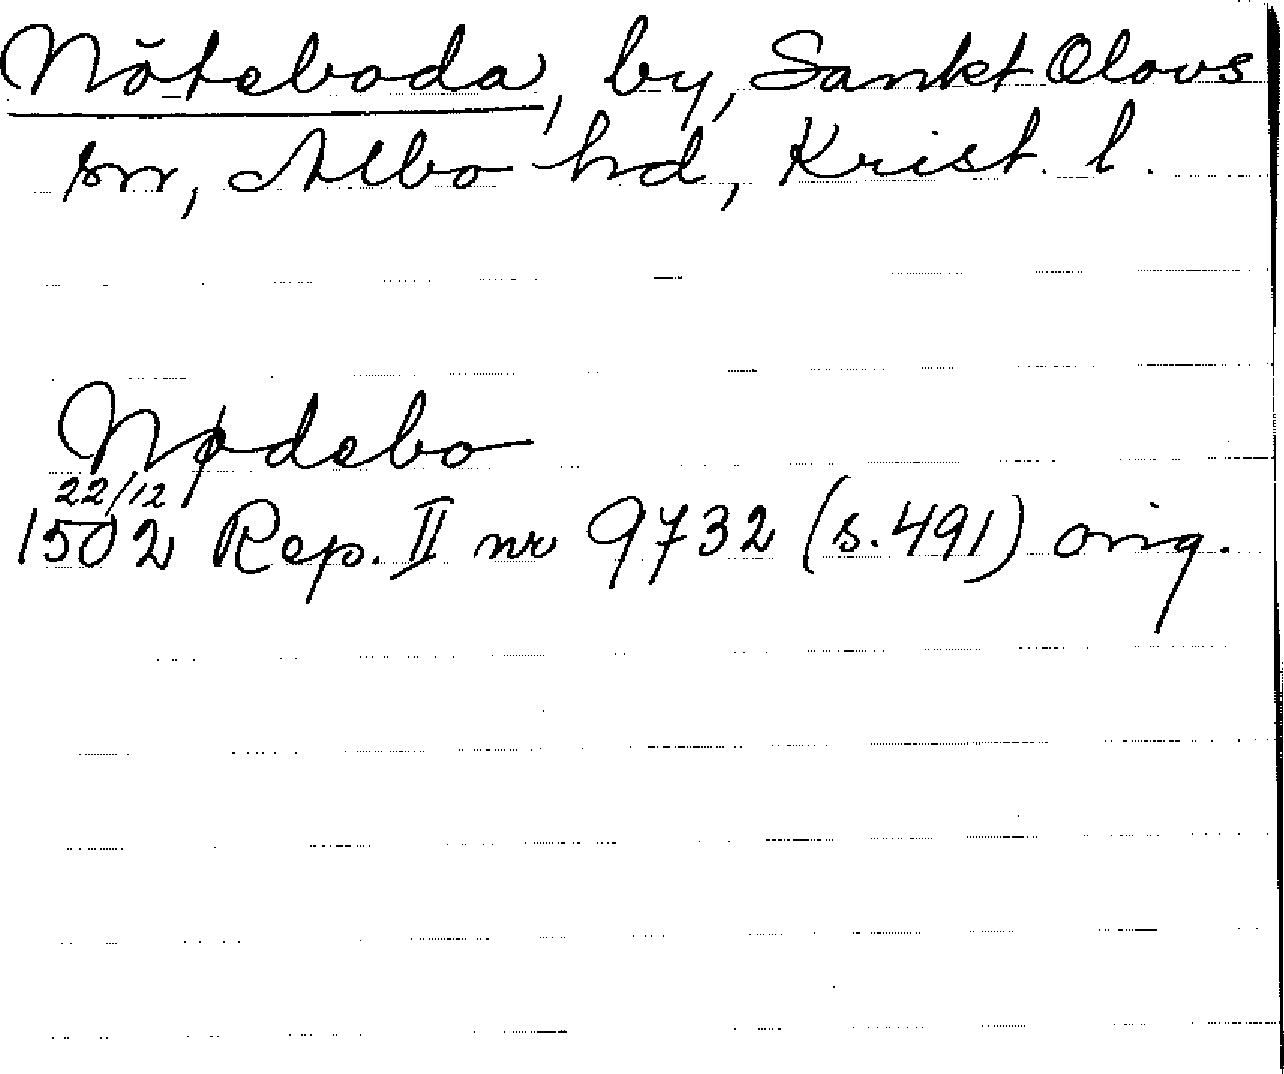 Nöteboda, by, Sankt Olovs
sn, Albo hd, Krist. l.
Nødebo
22/12
1502 Rep. II nr 9732 (s. 491) orig.